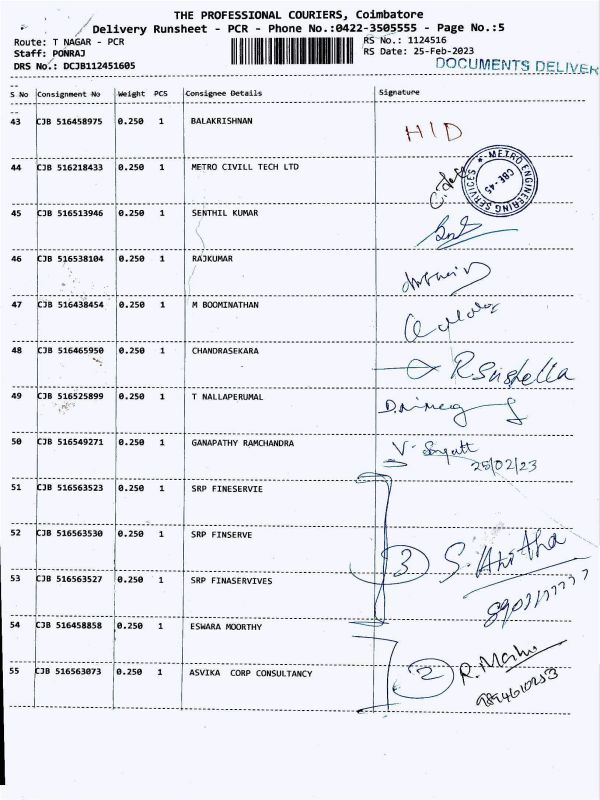 THE PROFESSIONAL COURIERS, Coimbatore
Delivery Runsheet - PCR - Phone No.:0422-3505555 - Page No.:5
Route: T NAGAR - PCR
RS No.: 1124516
Staff: PONRAJ
RS Date: 25-Feb-2023
DRS No.: DCJB112451605
DOCUMENTS DELIVER
S No Consignment No Weight PCS Consignee Details Signature
43 CJB 516458975 0.250 1 BALAKRISHNAN
H/D
44 CJB 516218433 0.250 1 METRO CIVILL TECH LTD
METRO ENGINEERING SERVICES
CBE-45
45 CJB 516513946 0.250 1 SENTHIL KUMAR
46 CJB 516538104 0.250 1 RAJKUMAR
47 CJB 516438454 0.250 1 M BOOMINATHAN
48 CJB 516465950 0.250 1 CHANDRASEKARA
49 CJB 516525899 0.250 1 T NALLAPERUMAL
50 CJB 516549271 0.250 1 GANAPATHY RAMCHANDRA
25/02/23
51 CJB 516563523 0.250 1 SRP FINESERVIE
52 CJB 516563530 0.250 1 SRP FINSERVE
3
53 CJB 516563527 0.250 1 SRP FINASERVIVES
54 CJB 516458858 0.250 1 ESWARA MOORTHY
55 CJB 516563073 0.250 1 ASVIKA CORP CONSULTANCY
2